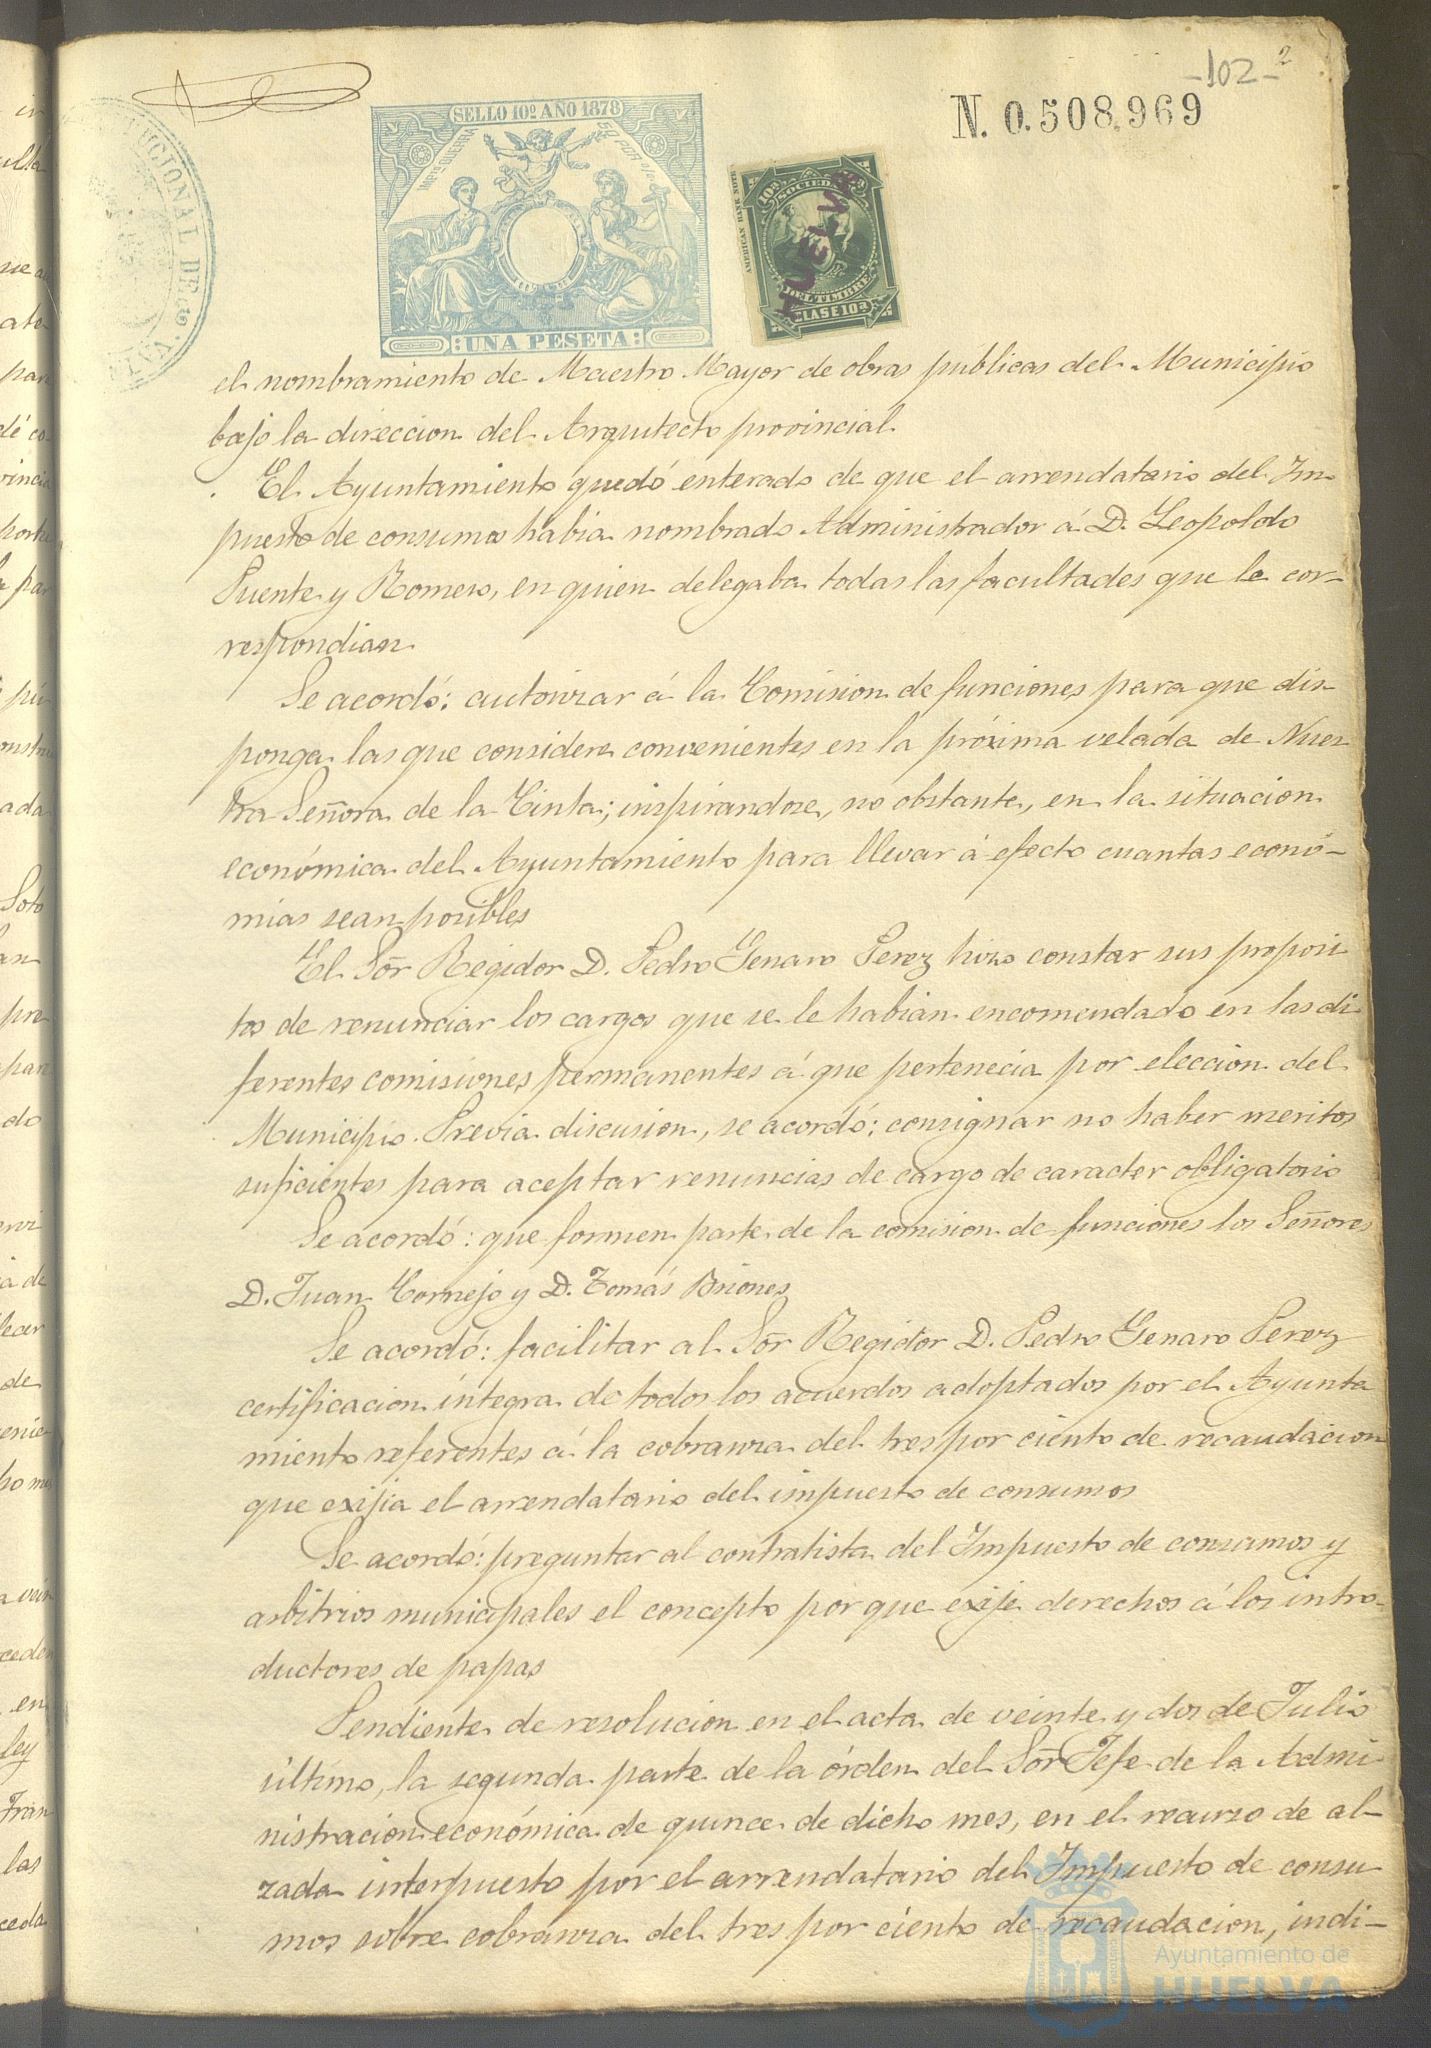 -102- 2
N. 0.508,969
SELLO 10º AÑO 1878
UNA PESETA
AMERICAN BANK NOTE
10ª SOCIEDAD
DEL TIMBRE
CLASE 10ª
HUELVA
el nombramiento de Maestro Mayor de obras públicas del Municipio
bajo la direccion del Arquitecto provincial.
El Ayuntamiento quedó enterado de que el arrendatario del Im
puesto de consumos habia nombrado Administrador á D. Leopoldo
Puente y Romero, en quien delegaba todas las facultades que le cor-
respondian.
Se acordó: autorizar á la Comision de funciones para que dis
ponga las que considere convenientes en la próxima velada de Nues
tra Señora de la Cinta; inspirandose, no obstante, en la situacion
económica del Ayuntamiento para llevar á efecto cuantas econó-
mias sean posibles
El Sōr Regidor D. Pedro Genaro Perez hizo constar sus proposi
tos de renunciar los cargos que se le habian encomendado en las di
ferentes comisiones permanentes á que pertenecia por eleccion del
Municipio. Previa discusion, se acordó: consignar no haber meritos
suficientes para aceptar renuncias de cargo de caracter obligatorio
Se acordó: que formen parte de la comision de funciones los Señores
D. Juan Cornejo y D. Tomás Briones
Se acordó: facilitar al Sōr Regidor D. Pedro Genaro Perez
certificacion integra de todos los acuerdos adoptados por el Ayunta
miento referentes á la cobranza del tres por ciento de recaudacion
que exijia el arrendatario del impuesto de consumos
Se acordó: preguntar al contratista del Impuesto de consumos y
arbitrios municipales el concepto por que exije derechos á los intro-
ductores de papas
Pendiente de resolucion en el acta de veinte y dos de Julio
último, la segunda parte de la órden del Sōr Jefe de la Admi
nistracion económica de quince de dicho mes, en el recurso de al-
zada interpuesto por el arrendatario del Impuesto de consu
mos sobre cobranza del tres por ciento de recaudacion, indi-
Ayuntamiento de
HUELVA